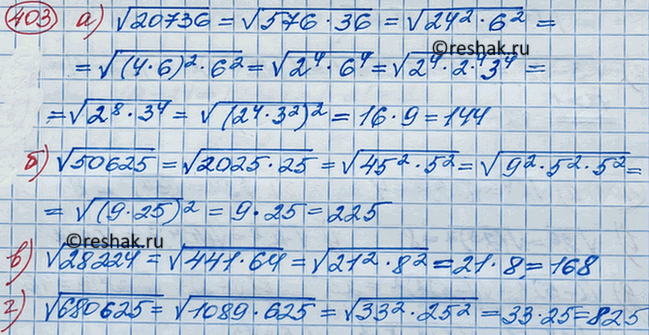 403 а) √20736 = √576 · 36 = √24² · 6² =
= √(4·6)² · 6² = √2⁴ · 6⁴ = √2⁴ · 2⁴ 3⁴ =
©reshak.ru
= √2⁸ · 3⁴ = √(2⁴ · 3²)² = 16 · 9 = 144
б) √50625 = √2025 · 25 = √45² · 5² = √9² · 5² · 5² =
= √(9 · 25)² = 9 · 25 = 225
©reshak.ru
в) √28224 = √441 · 64 = √21² · 8² = 21 · 8 = 168
г) √680625 = √1089 · 625 = √33² · 25² = 33 · 25 = 825